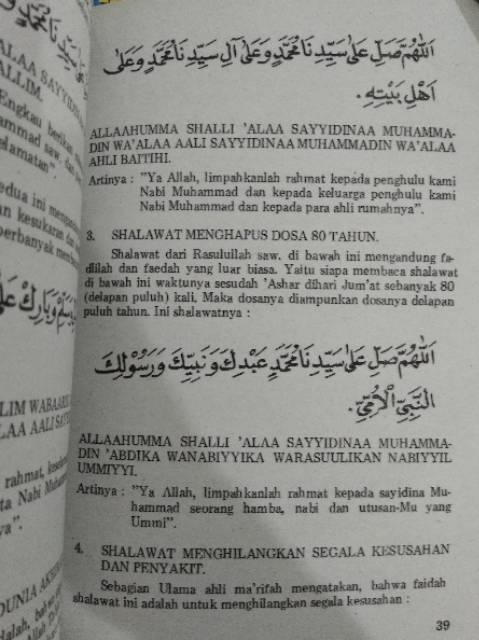 سَيِّدِنَا مُحَمَّدٍ وَ
ALAA SAYYIDIN
ALLIM.
Engkau berikan
ammad saw. dan
elamatan".
edua ini mengandung
an kesukaran dan
perbanyak memb
وَسَلِّمْ وَبَارِكْ عَلَى
LIM WABAARIK
LAA AALI SAYY
rahmat, kesela
ta Nabi Muhamm
ya".
DUNIA AKHIR
اَللّٰهُمَّ صَلِّ عَلَى سَيِّدِنَا مُحَمَّدٍ وَعَلَى آلِ سَيِّدِنَا مُحَمَّدٍ وَعَلَى
اَهْلِ بَيْتِهِ .
ALLAAHUMMA SHALLI 'ALAA SAYYIDINAA MUHAMMA-
DIN WA'ALAA AALI SAYYIDINAA MUHAMMADIN WA'ALAA
AHLI BAITIHI.
Artinya : "Ya Allah, limpahkanlah rahmat kepada penghulu kami
Nabi Muhammad dan kepada keluarga penghulu kami
Nabi Muhammad dan kepada para ahli rumahnya".
3. SHALAWAT MENGHAPUS DOSA 80 TAHUN.
Shalawat dari Rasulullah saw. di bawah ini mengandung fa-
dlilah dan faedah yang luar biasa. Yaitu siapa membaca shalawat
di bawah ini waktunya sesudah 'Ashar dihari Jum'at sebanyak 80
(delapan puluh) kali, Maka dosanya diampunkan dosanya delapan
puluh tahun. Ini shalawatnya :
اَللّٰهُمَّ صَلِّ عَلَى سَيِّدِنَا مُحَمَّدٍ عَبْدِكَ وَنَبِيِّكَ وَرَسُوْلِكَ
النَّبِيِّ الْاُمِّيِّ .
ALLAAHUMMA SHALLI 'ALAA SAYYIDINAA MUHAMMA-
DIN 'ABDIKA WANABIYYIKA WARASUULIKAN NABIYYIL
UMMIYYI.
Artinya : "Ya Allah, limpahkanlah rahmat kepada sayidina Mu-
hammad seorang hamba, nabi dan utusan-Mu yang
Ummi".
4. SHALAWAT MENGHILANGKAN SEGALA KESUSAHAN
DAN PENYAKIT.
Sebagian Ulama ahli ma'rifah mengatakan, bahwa faidah
shalawat ini adalah untuk menghilangkan segala kesusahan :
39